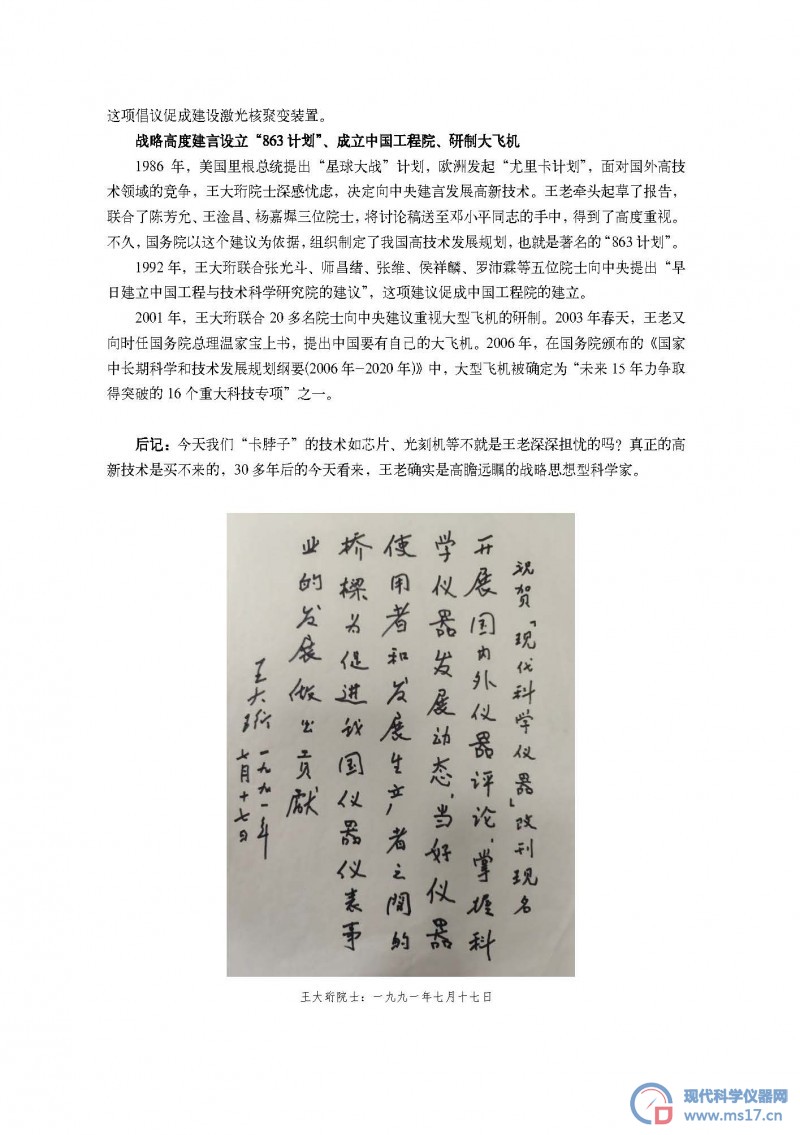 这项倡议促成建设激光核聚变装置。
战略高度建言设立“863 计划”、成立中国工程院、研制大飞机
1986 年，美国里根总统提出“星球大战”计划，欧洲发起“尤里卡计划”，面对国外高技
术领域的竞争，王大珩院士深感忧虑，决定向中央建言发展高新技术。王老牵头起草了报告，
联合了陈芳允、王淦昌、杨嘉墀三位院士，将讨论稿送至邓小平同志的手中，得到了高度重视。
不久，国务院以这个建议为依据，组织制定了我国高技术发展规划，也就是著名的“863 计划”。
1992 年，王大珩联合张光斗、师昌绪、张维、侯祥麟、罗沛霖等五位院士向中央提出“早
日建立中国工程与技术科学研究院的建议”，这项建议促成中国工程院的建立。
2001 年，王大珩联合 20 多名院士向中央建议重视大型飞机的研制。2003 年春天，王老又
向时任国务院总理温家宝上书，提出中国要有自己的大飞机。2006 年，在国务院颁布的《国家
中长期科学和技术发展规划纲要(2006 年-2020 年)》中，大型飞机被确定为“未来 15 年力争取
得突破的 16 个重大科技专项”之一。
后记：今天我们“卡脖子”的技术如芯片、光刻机等不就是王老深深担忧的吗？真正的高
新技术是买不来的，30 多年后的今天看来，王老确实是高瞻远瞩的战略思想型科学家。
祝贺「现代科学仪器」改刊现名
开展国内外仪器评论，掌握科
学仪器发展动态，当好仪器
使用者和发展生产者之間的
桥樑为促进我国仪器仪表事
业的发展做出贡献
王大珩 一九九一年
七月十七日
王大珩院士：一九九一年七月十七日
现代科学仪器网
www.ms17.cn